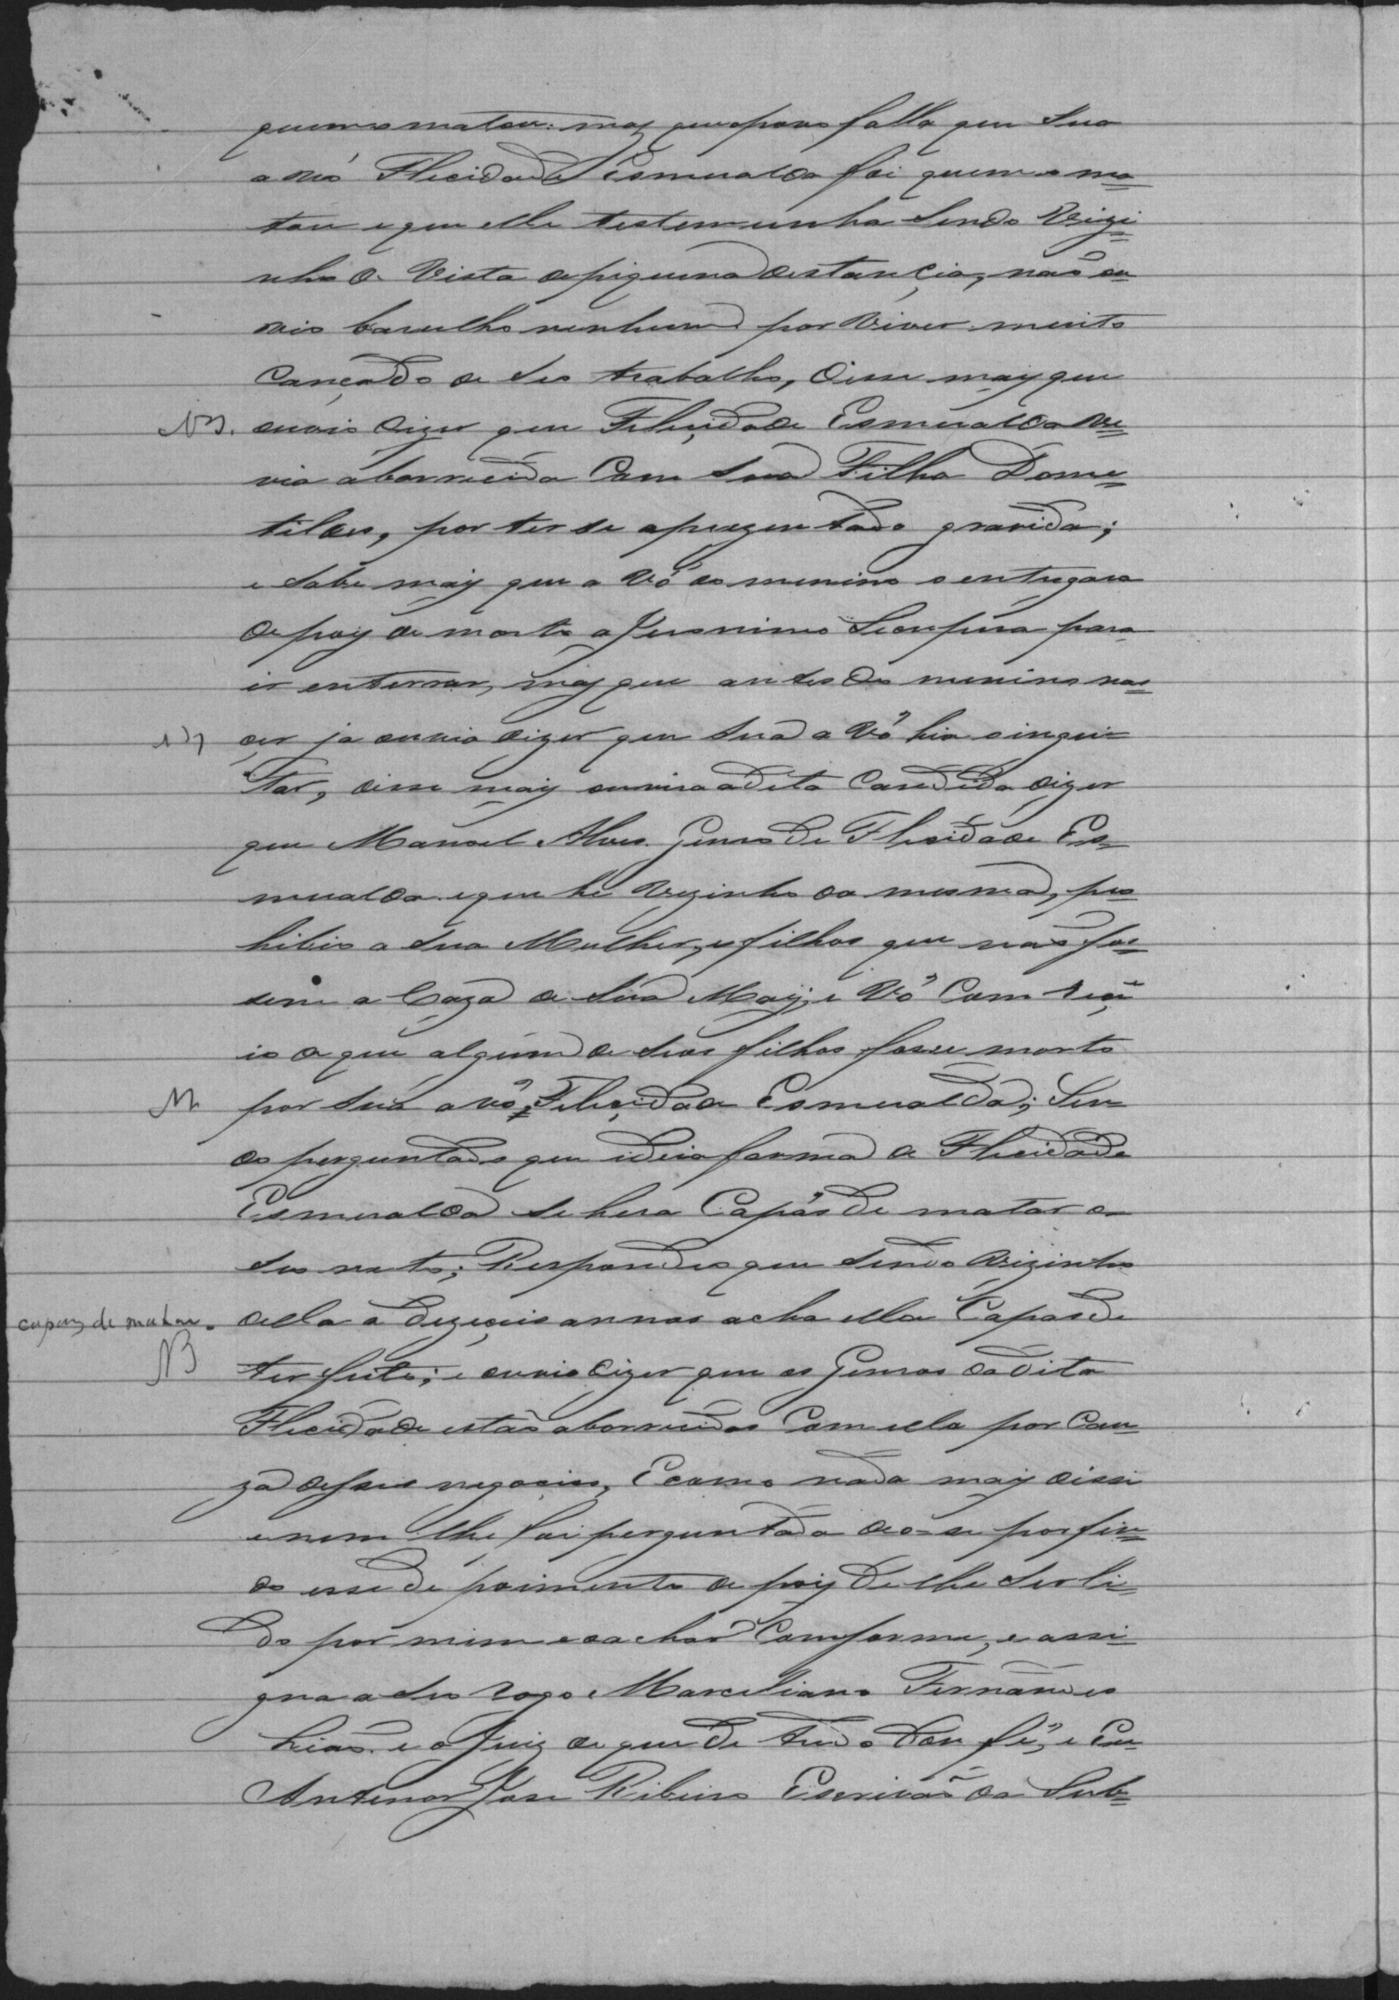 quem o matou: mas que o povo falla que Sua
a vó Flicidade Esmeralda foi quem o ma=
tou e que elle testemunha Sendo Vizi=
nho de Vista de piquena destancia, não ou=
vio barulho nenhum por Viver muito
Cançado de seo trabalho, disse mais que
NB. ouvio dizer que Felicidade Esmeralda vi=
via aborrecida Com Sua Filha Dome=
tildes, por ter se aprezentado gravida;
e Sabe mais que a Vó do menino o entregara
de pois de morto a Jeronimo Secupira para
ir enterrar, mas que antes do menino nas=
cer ja ouvio dizer que Sua a Vó hia o ingei=
tar, disse mais ouvira a dita Candida dizer
que Manoel Alves Genro de Flicidade Es=
meralda e que he Vezinho da mesma, pro=
hibio a Sua Mulher, e filhos que não fos=
sem a Caza de Sua May, e Vó Com
io de que algum de seos filhos fosse morto
NB por Sua a vó, Felicidade Esmeralda; Sen=
do perguntado que ideia forma de Flicidade
Esmeralda se hera Capás de matar o
seo neto; Respondeo que Sendo Vizinho
capaz de matar. della a dezeseis annos acha ella Capas de
NB ter feito; e ouvio dizer que os Genros da dita
Flicidade estão aborrecidos Com ella por Cau=
za desses negocios, E como nada mais disse
e nem lhe foi perguntado deo=se por fin=
do esse de poimento de pois de lhe ser li=
do por mim e o achar Comforme, e assi=
gna a seo rogo Marceliano Fernandes
e o Juiz de que de tudo dou fé, e Eu
Antenor Jose Ribeiro Escrivão da Sub=